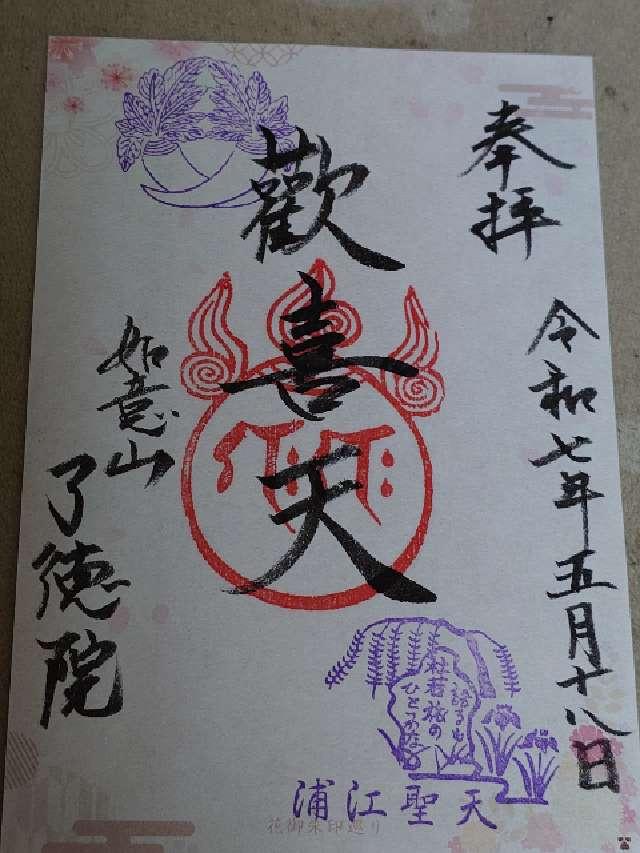 奉拝
令和七年五月十八日
歡喜天
如意山
了徳院
語るも
杜若旅の
ひとつかな
浦江聖天
花御朱印巡り